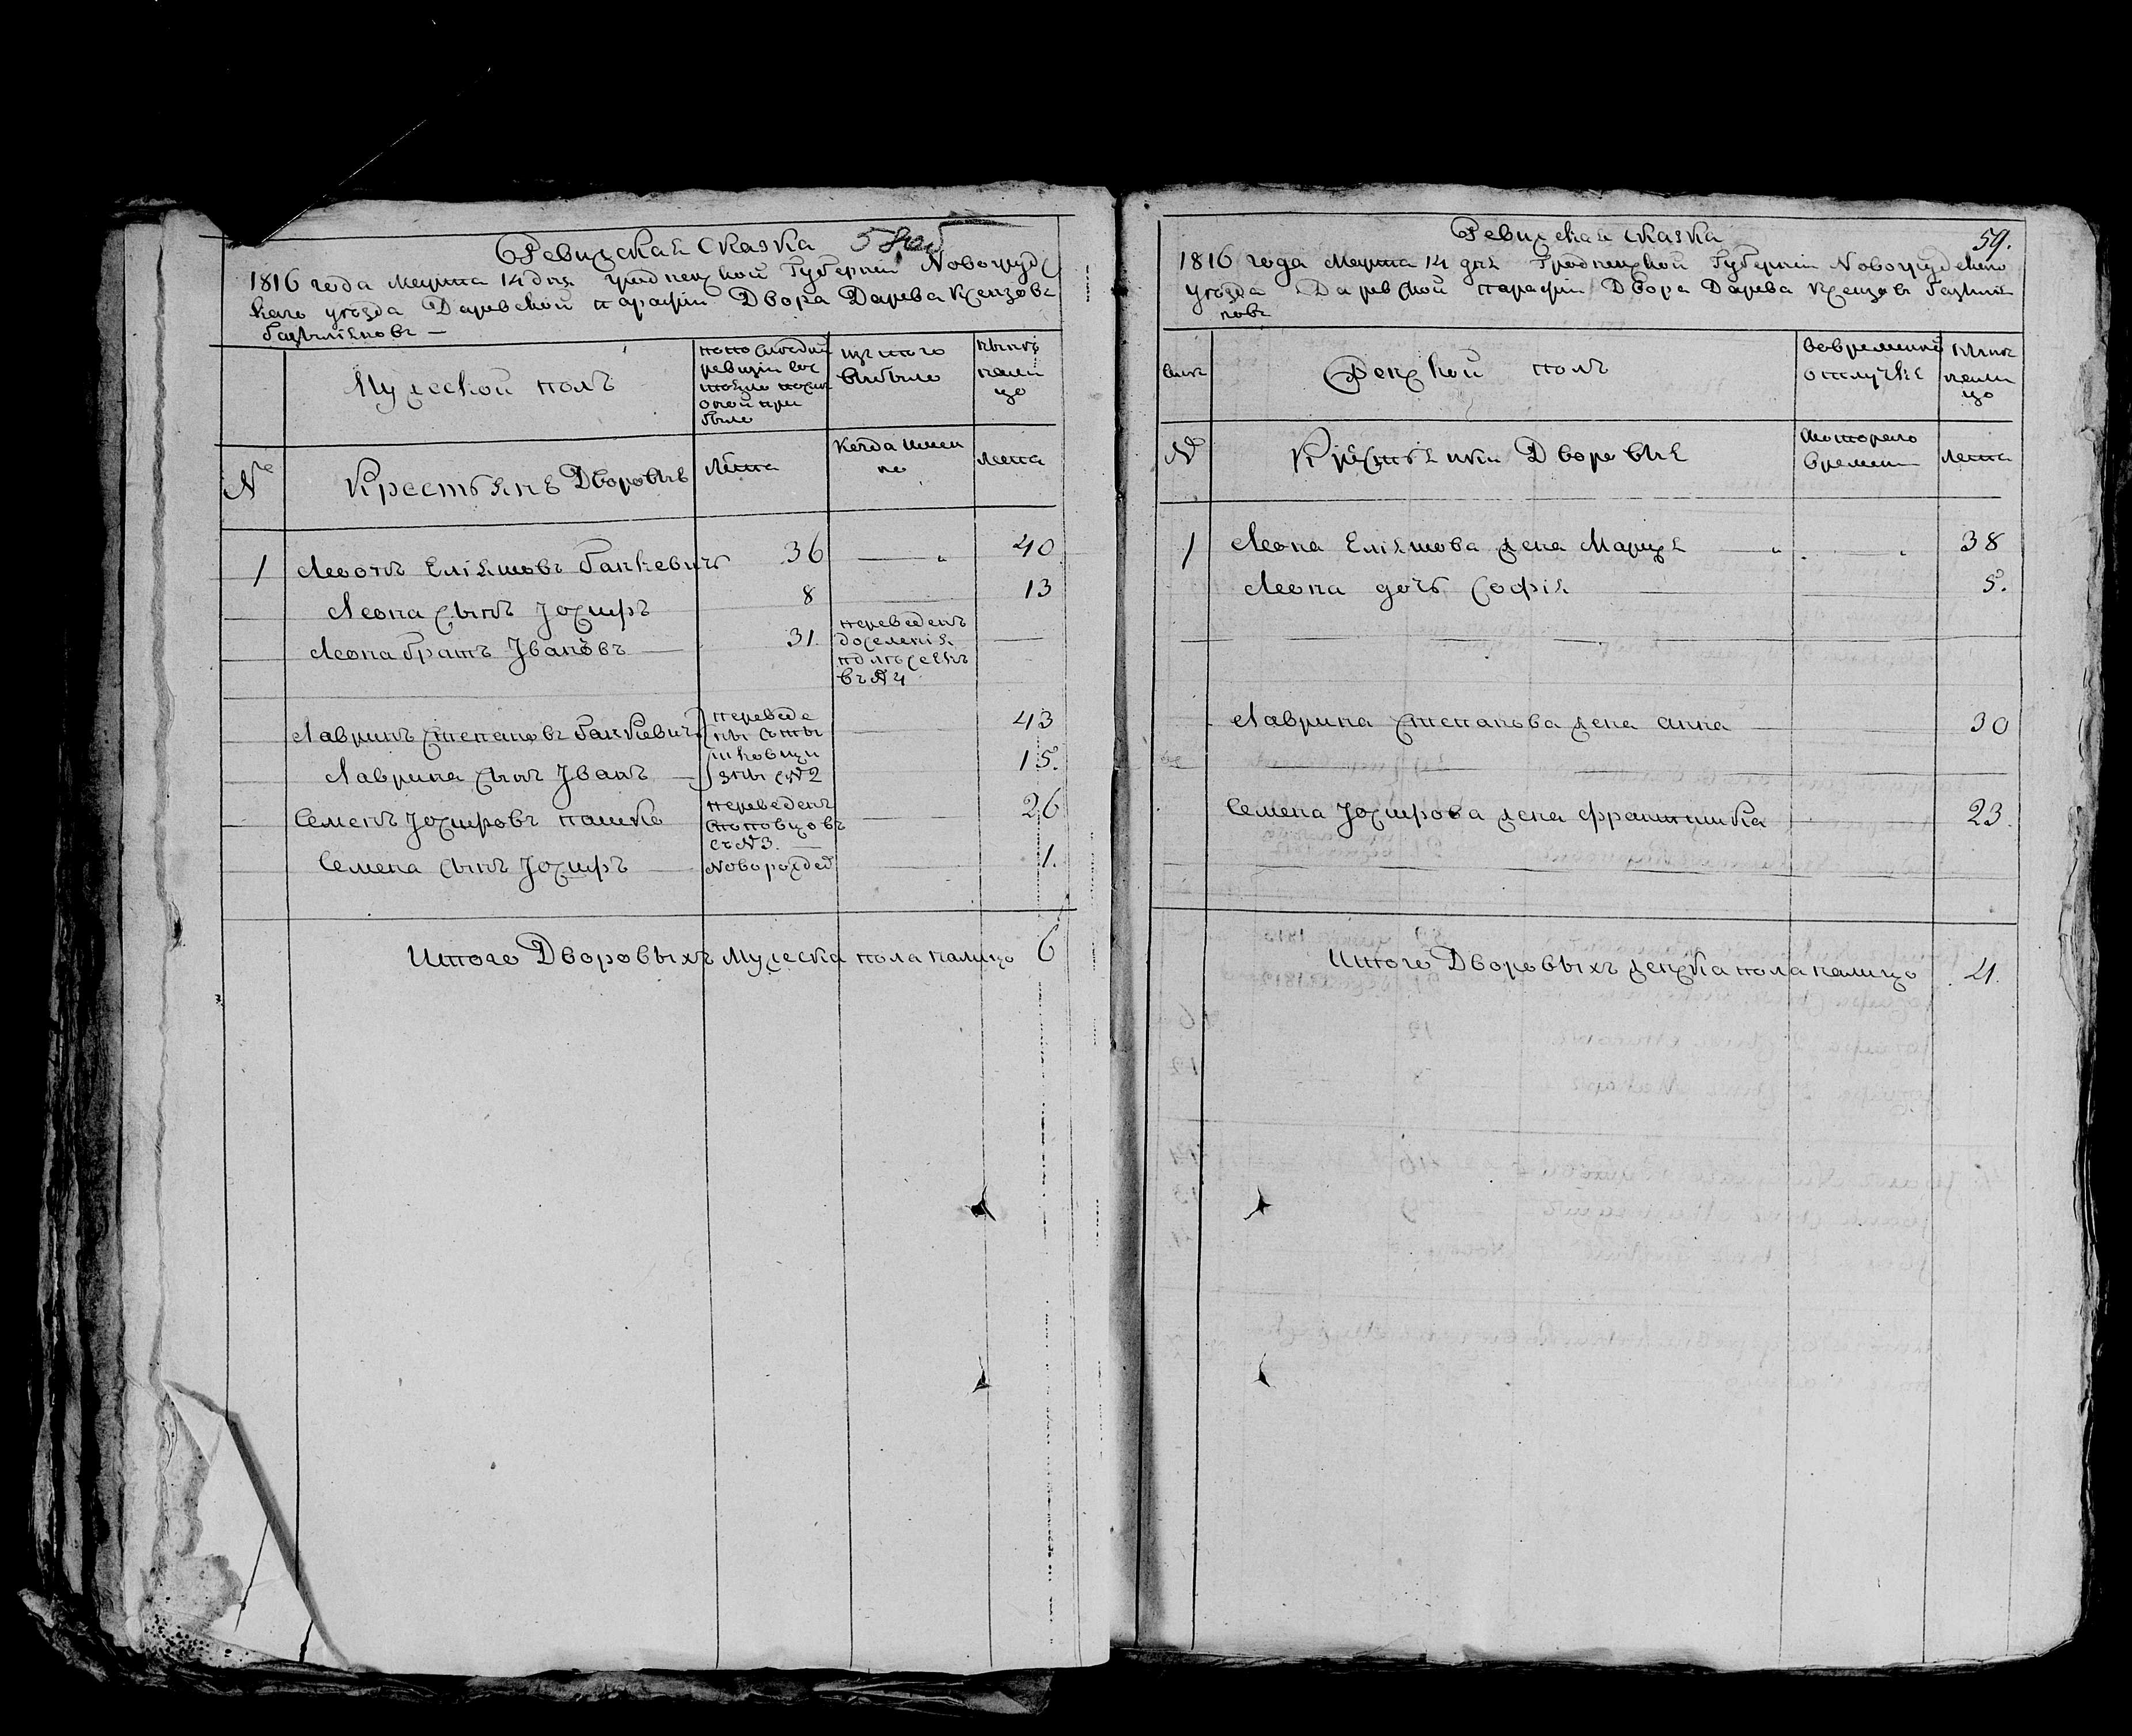 Ревизская сказка
1816 года Марта 14 дня Гродненской Губерніи Новогруд
скаго уезда Даревской парафіи Двора Дарева Ксендзовъ
Базиліановъ —
Мужеской полъ
по последней
ревизіи сос
тояло и после
оной при
было
изъ того
выбыло
ныне
нали
цо
№
Крестьянъ Дворовыхъ
лета
когда имен
но
лета
1 Леонъ Еліяшовъ Банкевичъ 36 — 40
Леона сынъ Іозифъ 8 — 13
Леона братъ Ивановъ — 31.
переведенъ
до селенія
въ № 4
Лавринъ Степановъ Банкевичъ — 43
переведе
ны с
зны с № 2
Лаврина сынъ Іванъ — 15.
Семенъ Іозифовъ — 26
переведенъ
съ № 3. —
Семена сынъ Іозифъ — Новорожден — 1.
Итого Дворовыхъ Мужеска пола налицо 6
Ревизская сказка
59.
1816 года Марта 14 дня Гродненской Губерніи Новогрудского
уезда Даревской парафіи Двора Дарева Ксендзовъ Базилія
новъ
Женской полъ
вовременной
отлучке
ныне
нали
цо
№
Крестьянки Дворовыя
с которого
времени
лета
1 Леона Еліяшова жена Марися 38
Леона дочь Софія — 5.
Лаврина Степанова жена Анна — 30
Семена Іозифова жена Францишка — 23.
Итого Дворовыхъ женска пола налицо 4.